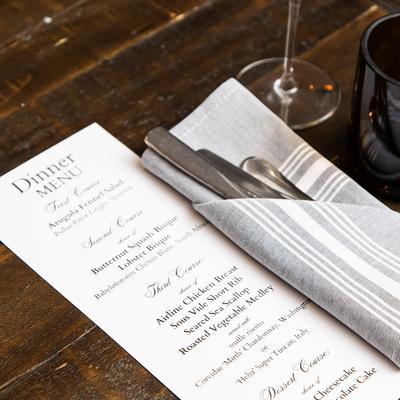 Dinner
MENU
First Course:
Arugula Fennel Salad
Pullus Pinot Grigio, Slovenia
Second Course:
choice of
Butternut Squash Bisque
Lobster Bisque
Babylonstoren Chenin Blanc, South Africa
Third Course:
choice of
Airline Chicken Breast
Sous Vide Short Rib
Seared Sea Scallop
Roasted Vegetable Medley
served with
truffle risotto
Corvidae 'Mirth' Chardonnay, Washington
or
'Heba' Super Tuscan, Italy
Dessert Course:
choice of
Cheesecake
Cake